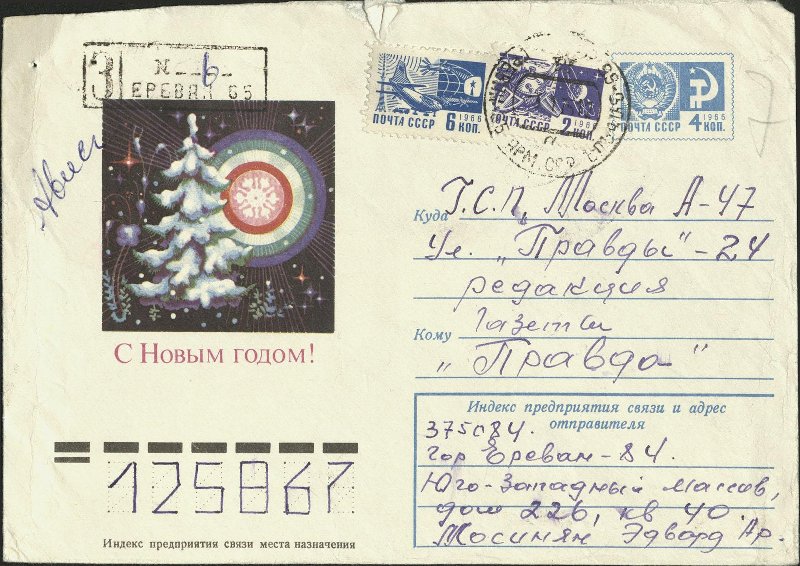 З
N 6
ЕРЕВАН 65
Авиа
1966
ПОЧТА СССР 6 КОП.
1966
ПОЧТА СССР 2 КОП.
1966
ПОЧТА СССР 4 КОП.
АРМ. ССР
С Новым годом!
Куда Г.С.П. Москва А-47
Ул. "Правды" - 24
редакция
Кому газеты
"Правда"
Индекс предприятия связи и адрес отправителя
375084.
гор Ереван-84.
Юго-Западный массив,
дом 226, кв 40.
Мосинян Эдвард Ар.
125867
Индекс предприятия связи места назначения